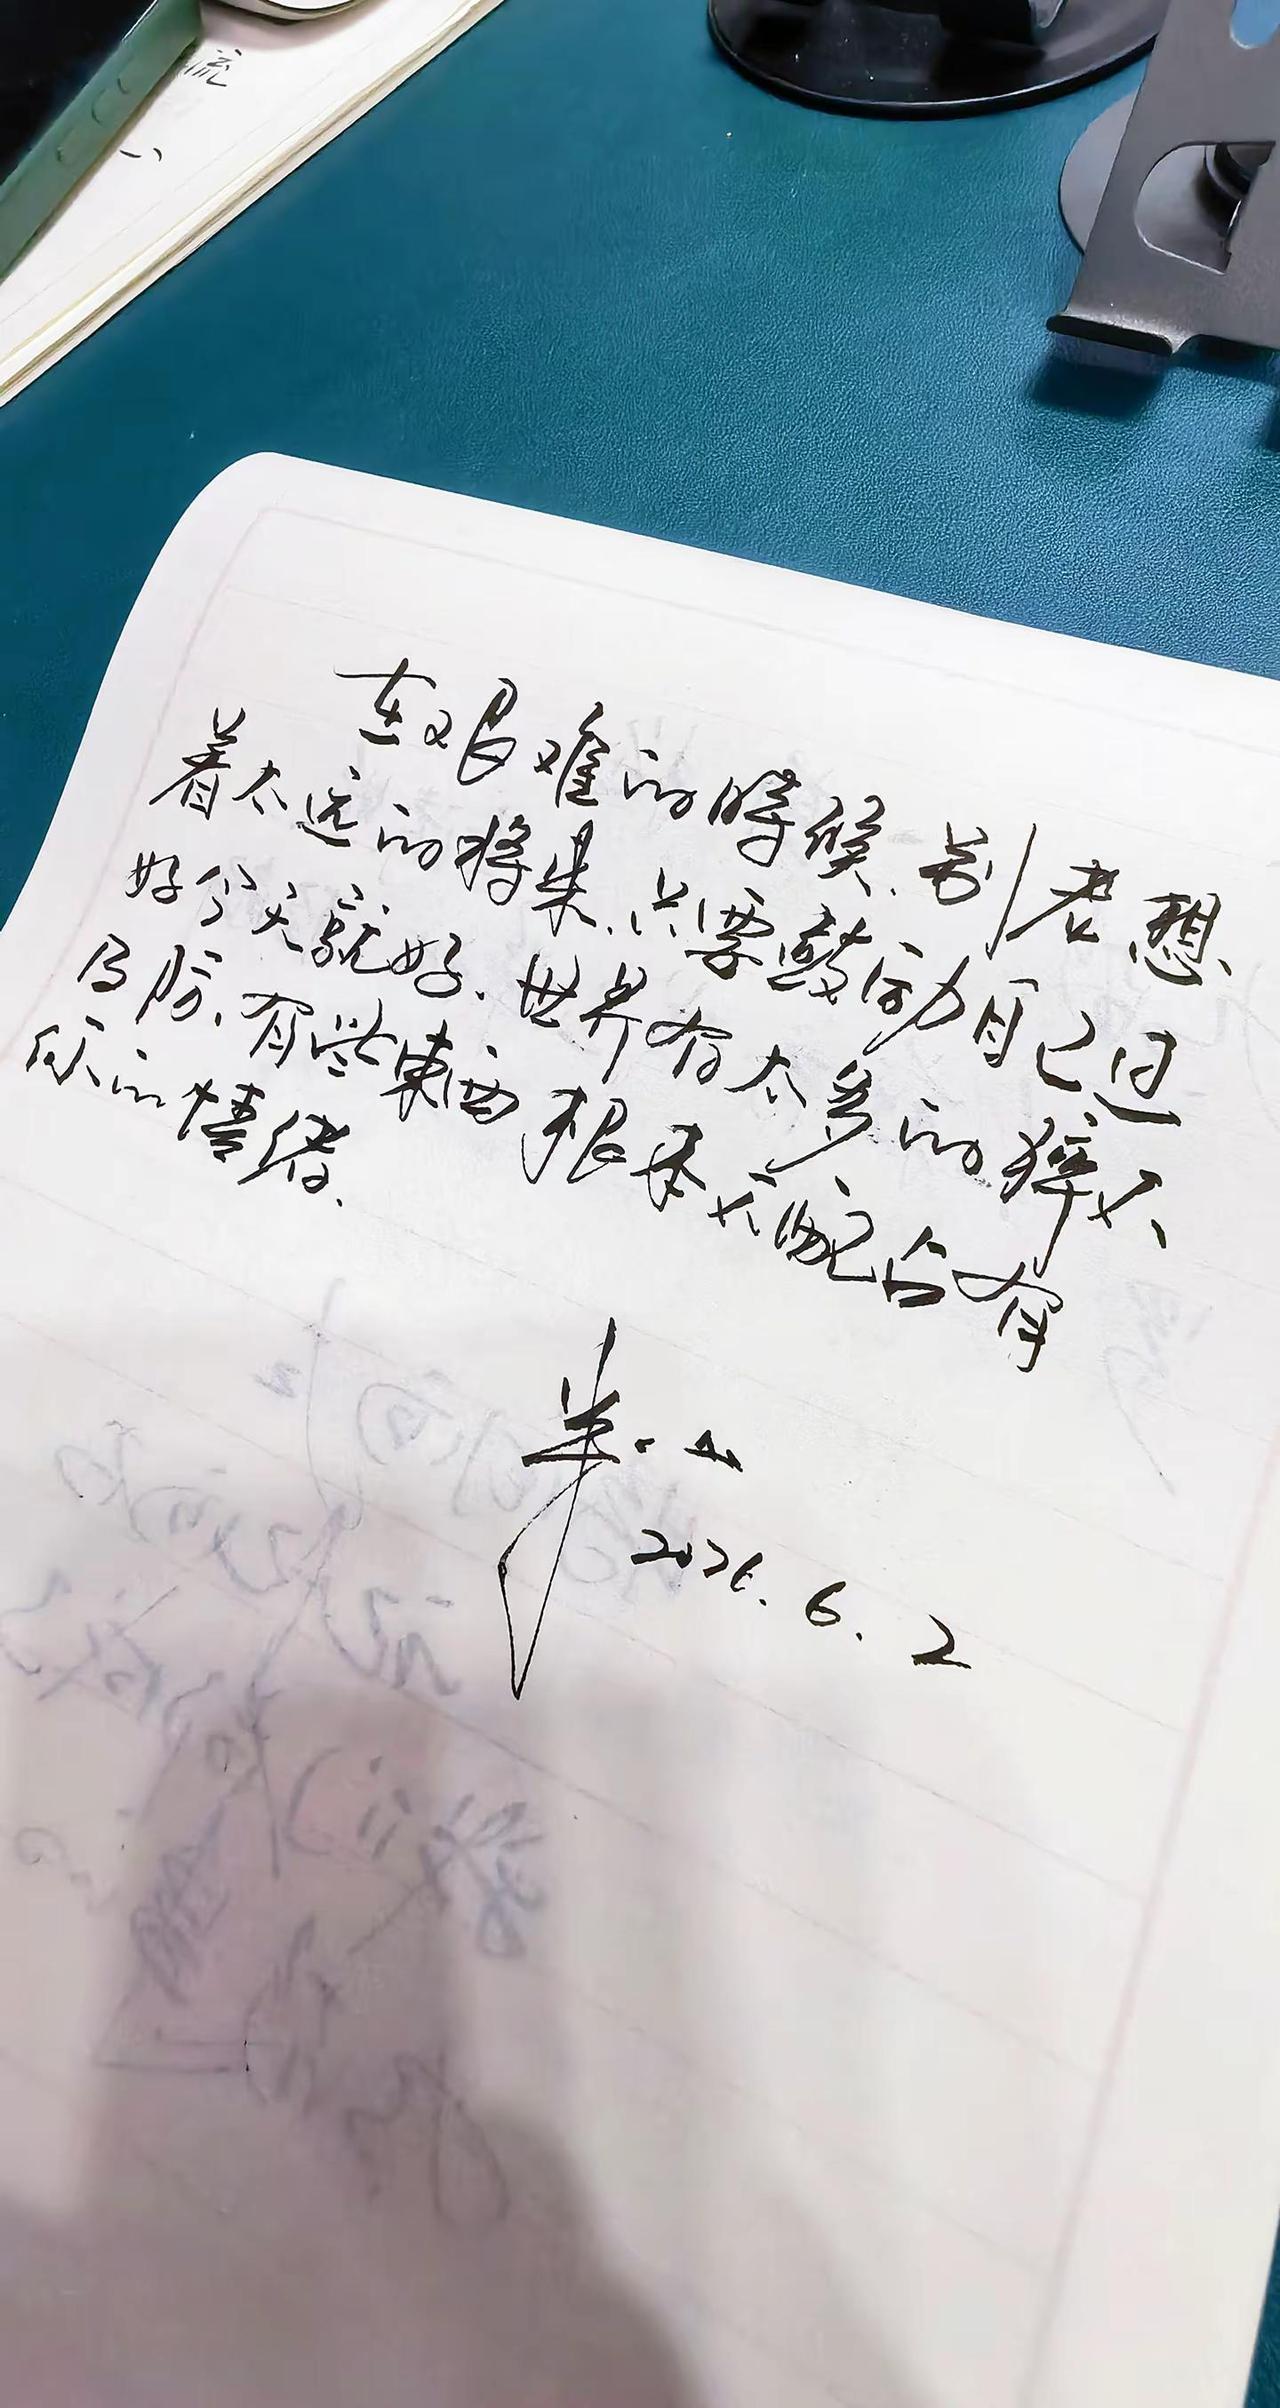 流
在艰难的時候、别老想
着太远的将来、只要鼓励自己过
好今天就好、世界有太多的猝不
及防、有些東西根本不配占有
你的情绪、
2026.6.2